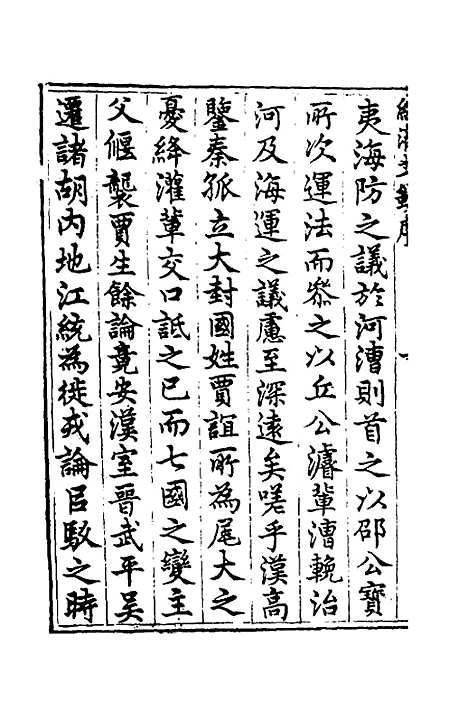 夷海防之議於河漕則首之以邵公寶
所次運法而叅之以丘公濬輩漕輓治
河及海運之議慮至深遠矣嗟乎漢高
鑒秦孤立大封國姓賈誼所為尾大之
憂絳灌輩交口詆之已而七國之變主
父偃襲賈生餘論竟安漢室晉武平吴
遷諸胡内地江統為徙戎論臣駁之時